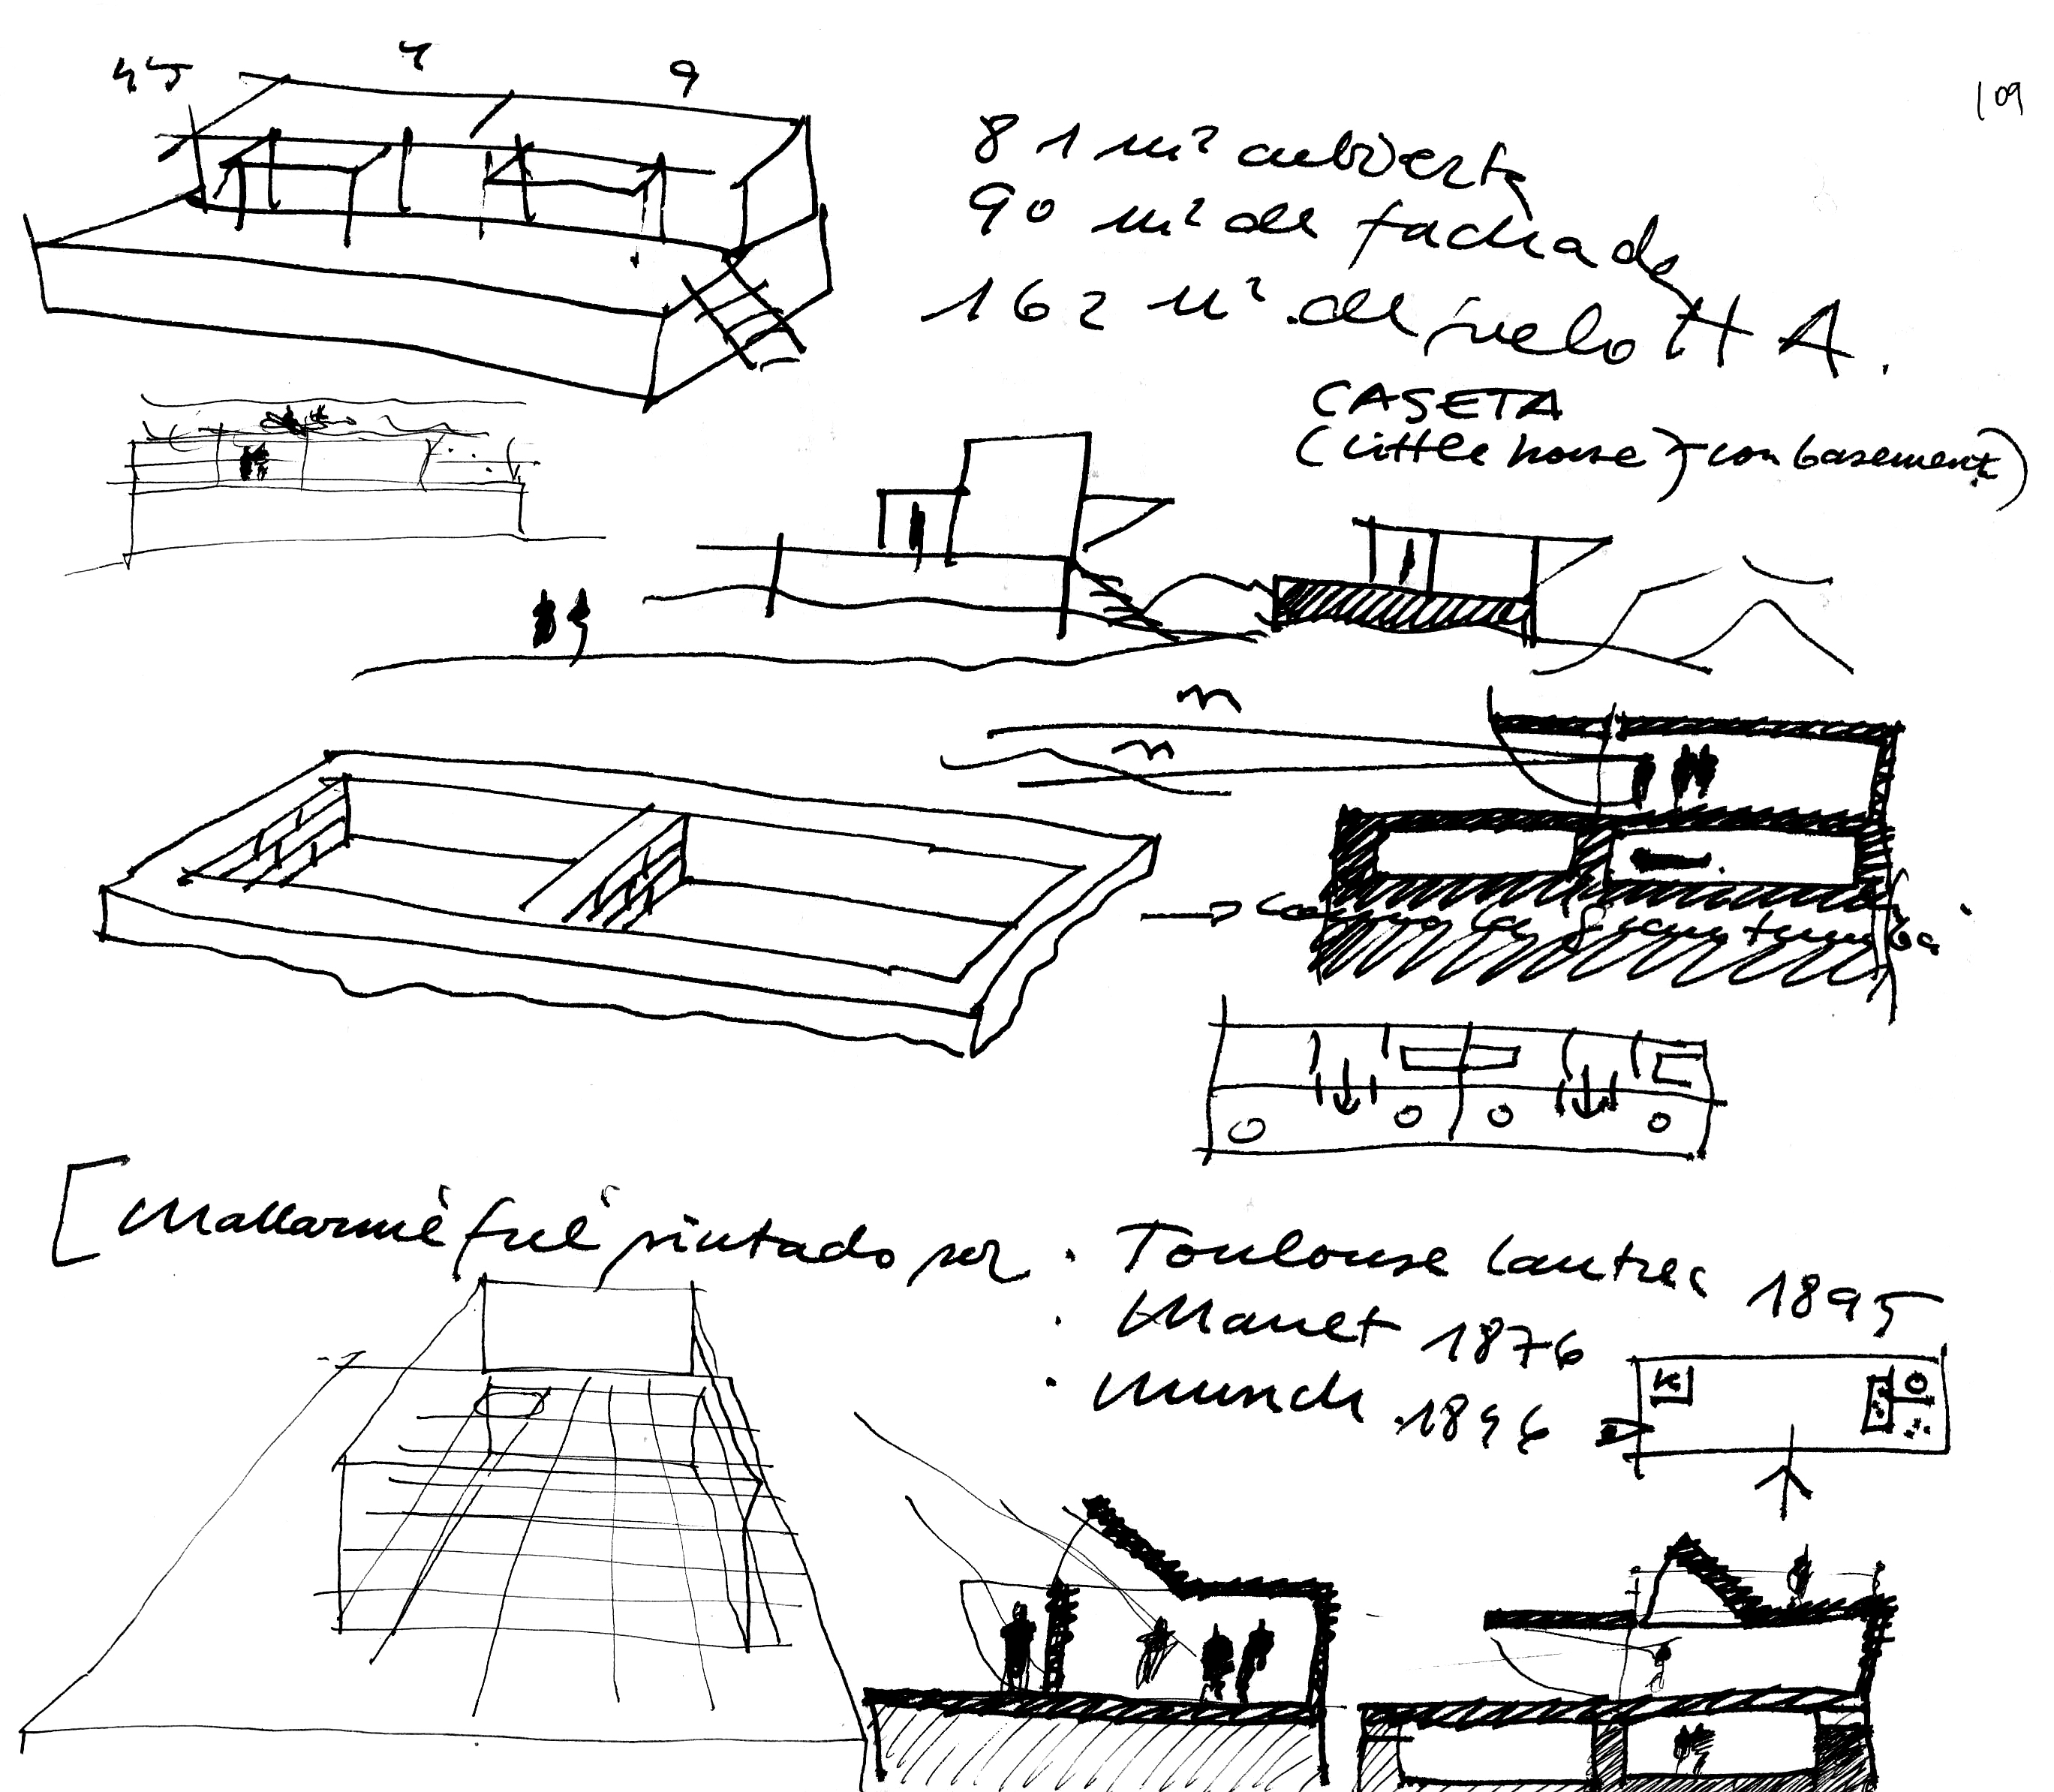 45 4 9
109
81 m² cubierta
90 m² de fachada
162 m² de suelo H A.
CASETA
(little house) - con basement)
n
n
→ como la gran tumba
[ Mallarmé fué pintado por . Toulouse Lautrec 1895
. Manet 1876
. Munch 1896
K